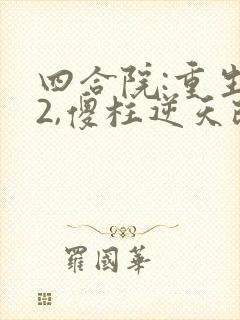 四合院:重生
2,傻柱逆天改
羅國華